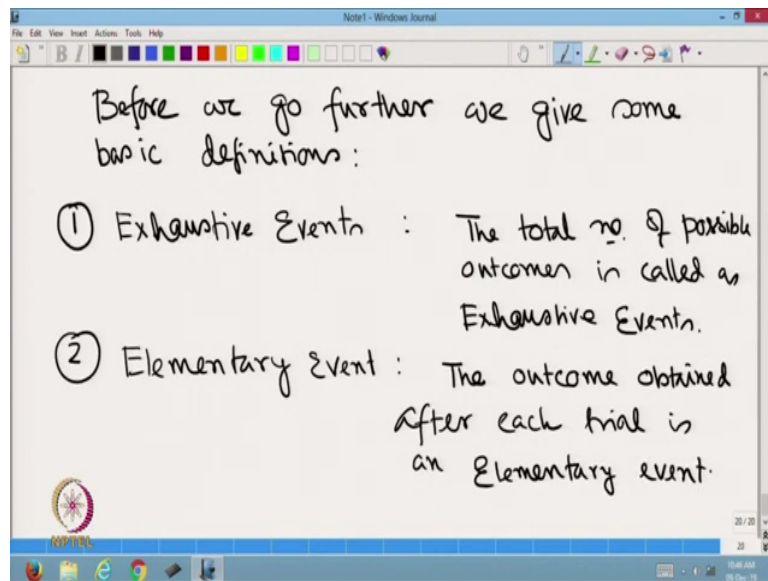 Note1 - Windows Journal
File Edit View Insert Actions Tools Help
Before we go further we give some
basic definitions:
① Exhaustive Events : The total no. of possible
outcomes is called as
Exhaustive Events.
② Elementary Event : The outcome obtained
after each trial is
an Elementary event.
NPTEL
20 / 20
20
10:46 AM
09-Dec-15